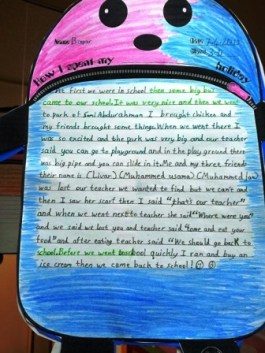 How I spent my holiday
At first we were in school then some big bus
came to our school. It was very nice and then we went
to park of Sami Abdurahman I brought chicken and
my friends brought some things. When we went there I
was so excited and the park was very big and our teacher
said you can go to playground and in the play ground there
was big pipe and you can slide in it. Me and my three friends
their name is (Livar) (Muhammed usama) (Muhammed
was lost our teacher we wanted to find but we can't and
then I saw her scarf then I said "that's our teacher"
and when we went next to teacher she said "where were you"
and we said we lost you and teacher said "come and eat your
food" and after eating teacher said "We should go back to
school. Before we went to school quickly I ran and buy an
ice cream then we came back to school!